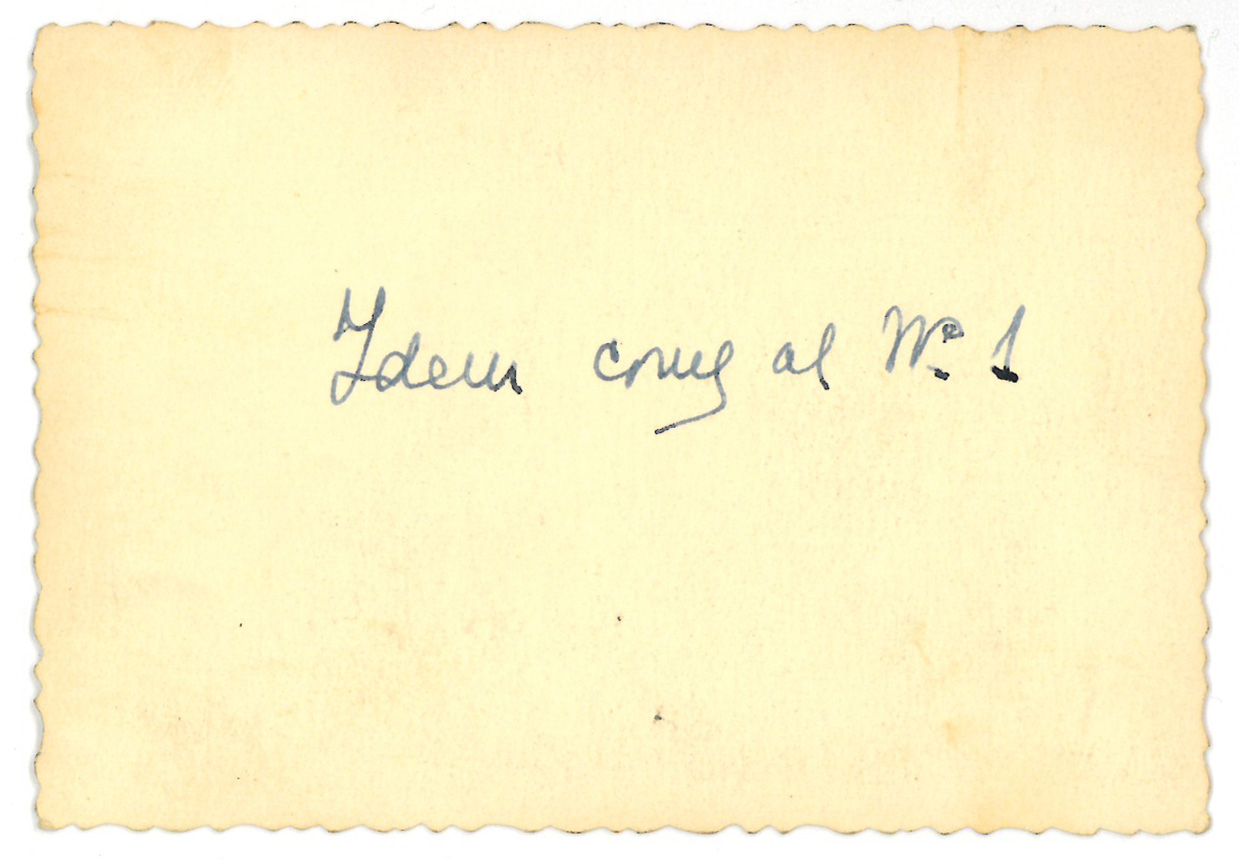 Idem come al Nº 1